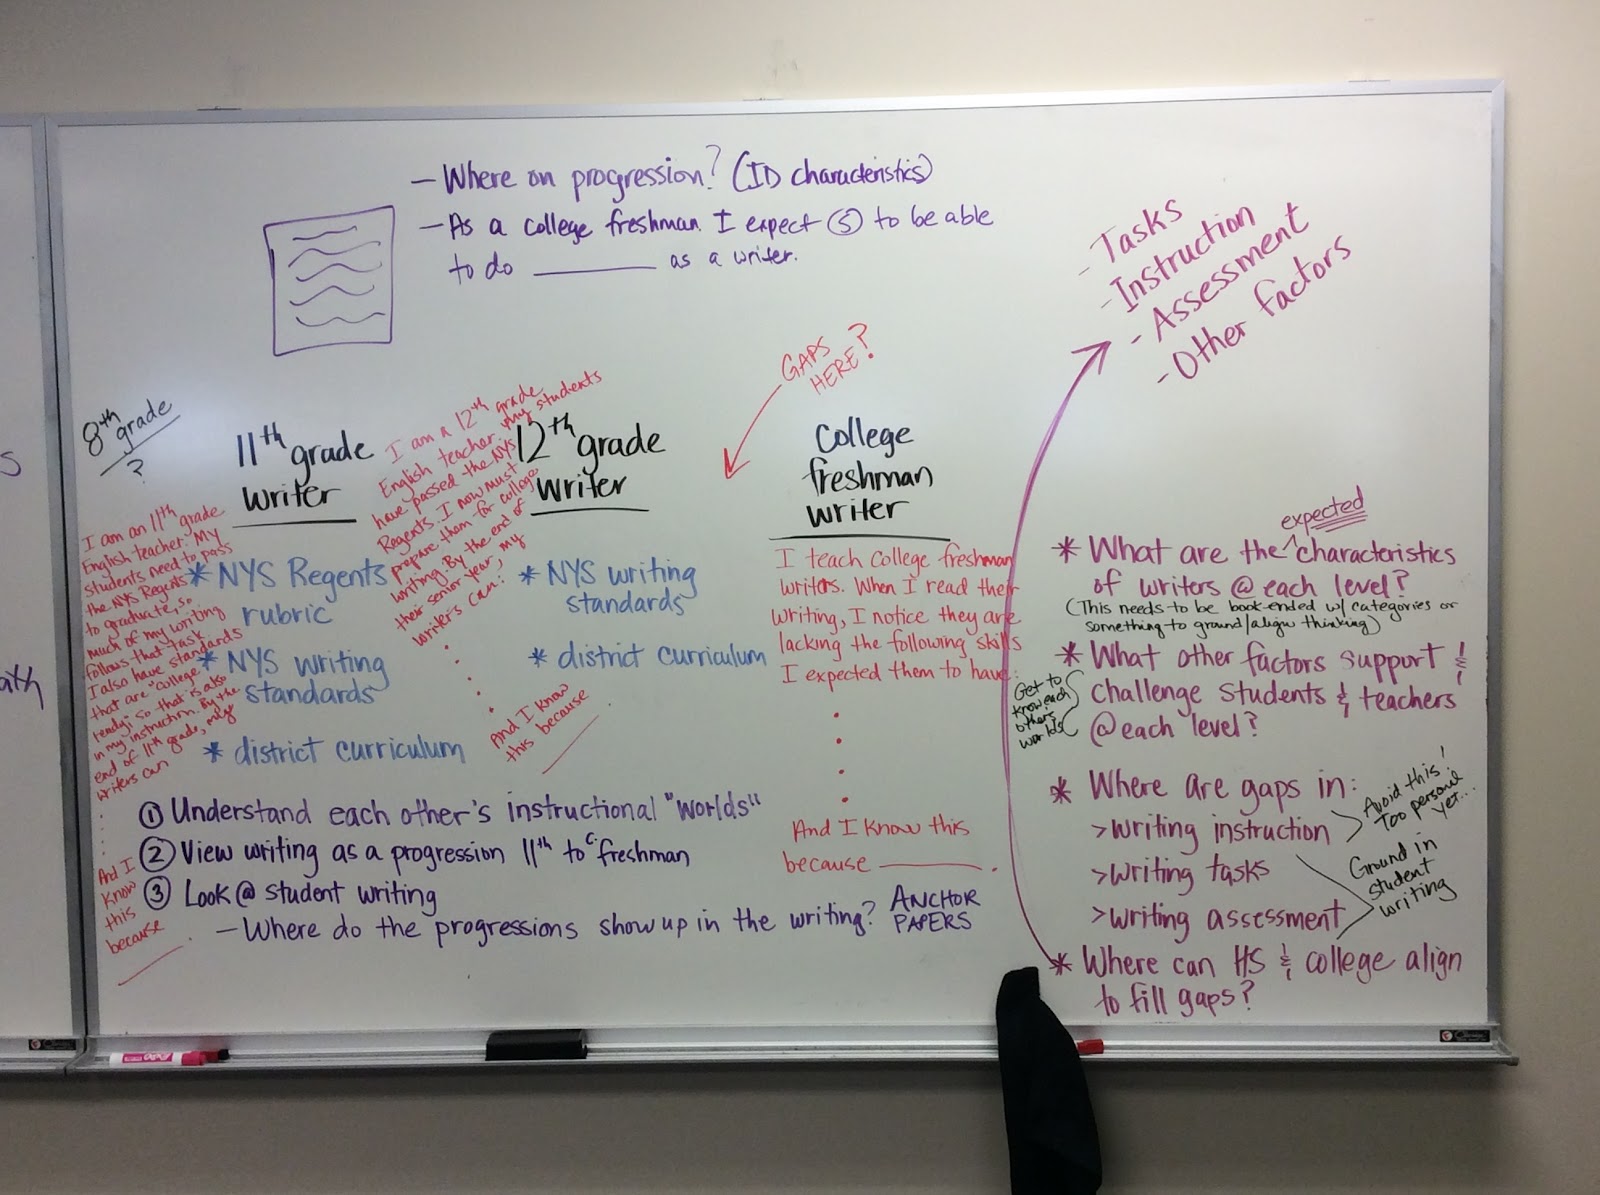 - Where on progression? (ID characteristics)
- As a college freshman I expect Ⓢ to be able
to do ________ as a writer.
- Tasks
- Instruction
- Assessment
- Other factors
GAPS
HERE?
8th
grade
?
11th grade
writer
12th grade
writer
College
freshman
writer
I am an 11th grade
English teacher. My
students need to pass
the NYS Regents
to graduate, so
much of my writing
follows that task.
I also have standards
that are "college
ready," so that is also
in my instruction. By the
end of 11th grade, my
writers can
And I
know
this
because
* NYS Regents
rubric
* NYS writing
standards
* district curriculum
I am a 12th grade
English teacher. My students
have passed the NYS
Regents. I now must
prepare them for college
writing. By the end of
their senior year, my
writers can:
And I know
this because
* NYS writing
standards
* district curriculum
I teach college freshman
writers. When I read their
writing, I notice they are
lacking the following skills
I expected them to have:
And I know this
because ________.
① Understand each other's instructional "worlds"
② View writing as a progression 11th to C. freshman
③ Look @ student writing
- Where do the progressions show up in the writing?
ANCHOR
PAPERS
expected
* What are the ^ characteristics
of writers @ each level?
(This needs to be book-ended w/ categories or
something to ground/align thinking)
* What other factors support &
challenge students & teachers
@ each level?
Get to
know each
others
worlds
* Where are gaps in:
>writing instruction
>writing tasks
>writing assessment
Avoid this!
Too personal
yet...
Ground in
student
writing
* Where can HS & college align
to fill gaps?
s
ath
EXPO